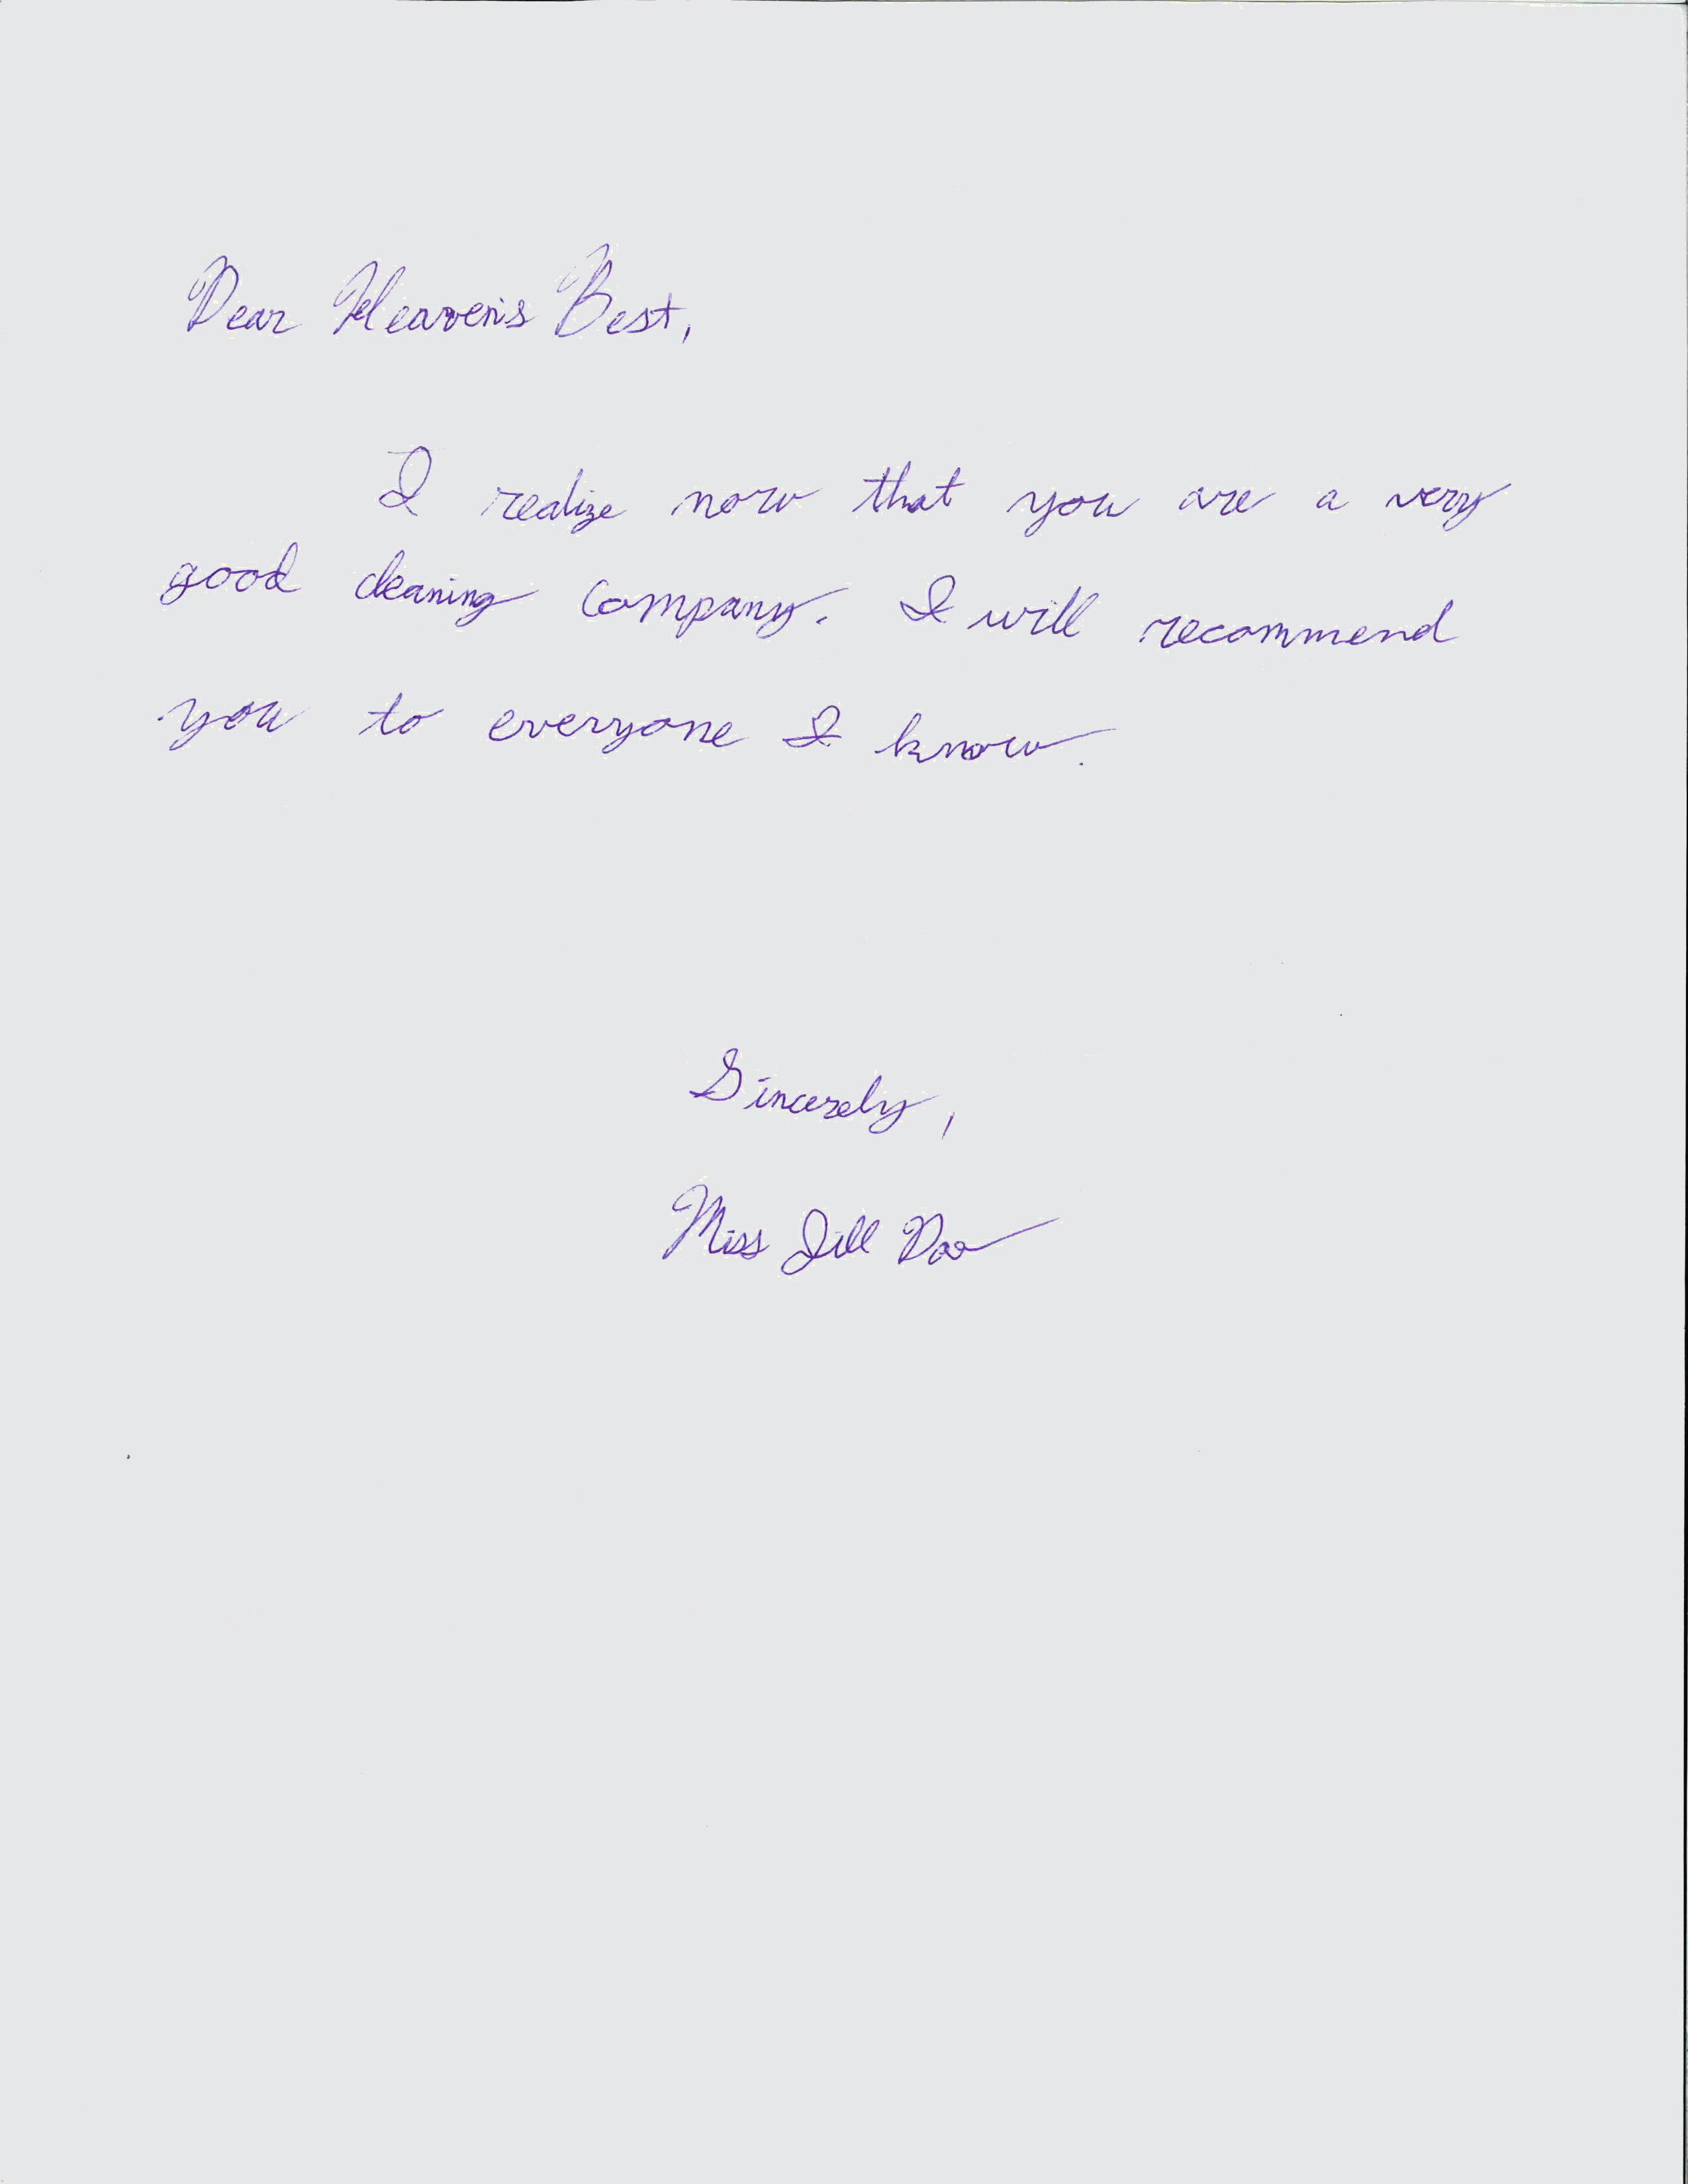 Dear Heaven's Best,
I realize now that you are a very
good cleaning Company. I will recommend
you to everyone I know.
Sincerely,
Miss Jill Doe